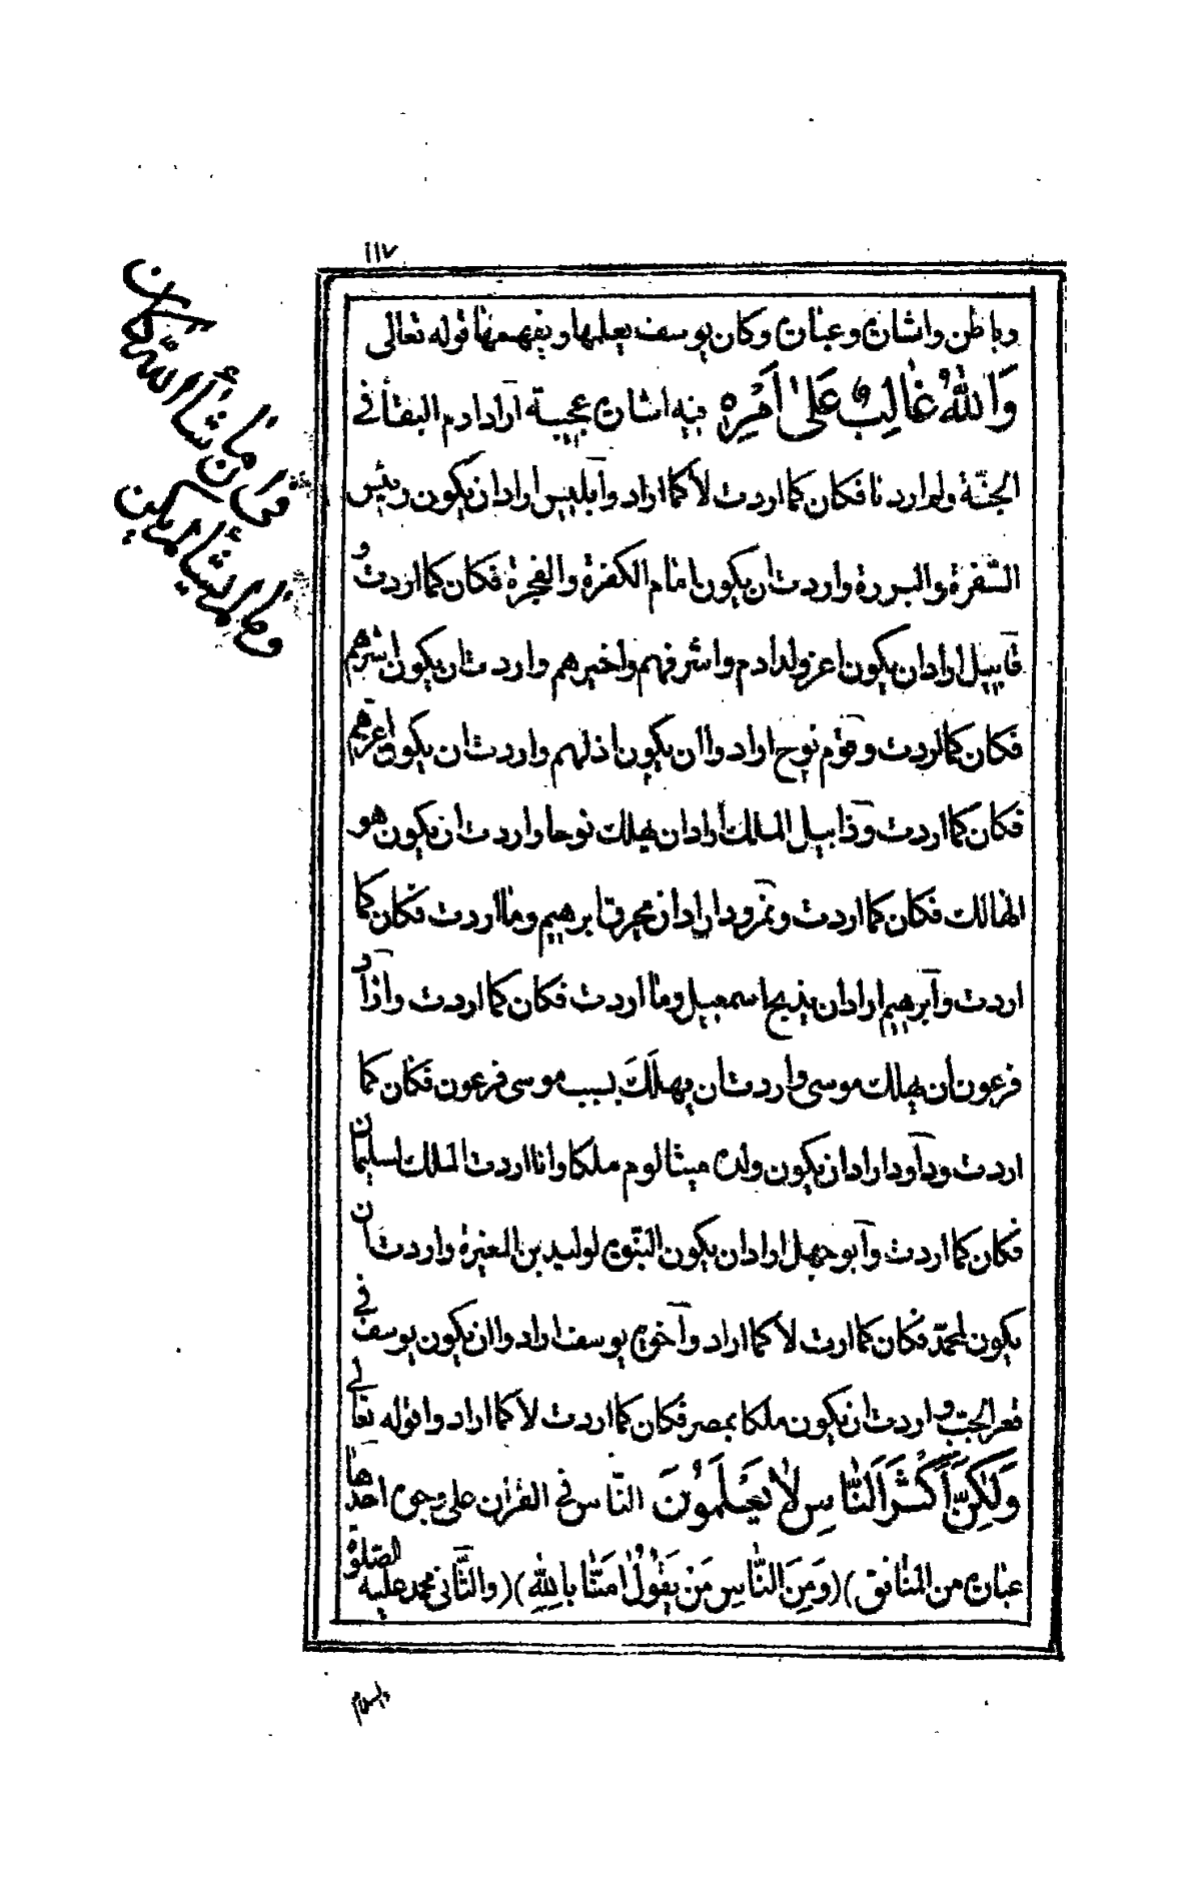 ١١٧
وباطن واشارة وعبارة وكان يوسف يعلمها ويفهمها قوله تعالى
وَاللّٰهُ غَالِبٌ عَلىٰ اَمْرِهٖ فيه اشارة عجيبة اراد ادم البقأ فى
الجنّة ولم اردنا فكان كما اردت لا كما اراد وابليس اراد ان يكون رئيس
السّفرة والبررة واردت ان يكون امام الكفرة والفجرة فكان كما اردت و
قابيل اراد ان يكون اعز ولد ادم واشرفهم واخيرهم واردت ان يكون اشرهم
فكان كما اردت وقوم نوح ارادوا ان يكون اذلهم واردت ان يكون اعزهم
فكان كما اردت وذابيل الملك اراد ان يهلك نوحا واردت ان يكون هو
الهالك فكان كما اردت ونمرود اراد ان يحرق ابرهيم وما اردت فكان كما
اردت وابرهيم اراد ان يذبح اسمعيل وما اردت فكان كما اردت واراد
فرعون ان يهلك موسى واردت ان يهلكَ بسبب موسى فرعون فكان كما
اردت وداود اراد ان يكون ولده ميشالوم ملكا وانا اردت الملك لسليمان
فكان كما اردت وابو جهل اراد ان يكون النبّوة لوليد بن المغيرة واردت ان
يكون لمحمّد فكان كما اردت لا كما اراد واخوة يوسف ارادوا ان يكون يوسف فى
قعر الجبّ واردت ان يكون ملكا بمصر فكان كما اردت لا كما ارادوا قوله تعالى
وَلٰكِنَّ اَكْثَرَ النَّاسِ لاٰ يَعْلَمُونَ النّاس فى القرٰان على وجوه احدها
عبارة من المنافق )(وَمِنَ النَّاسِ مَنْ يَقُولُ اٰمَنّٰا بِاللّٰهِ)( والثّانى محمد عليه الصّلوة
والسلام
ما شأ الله كان
وما لم يشأ لم يكن